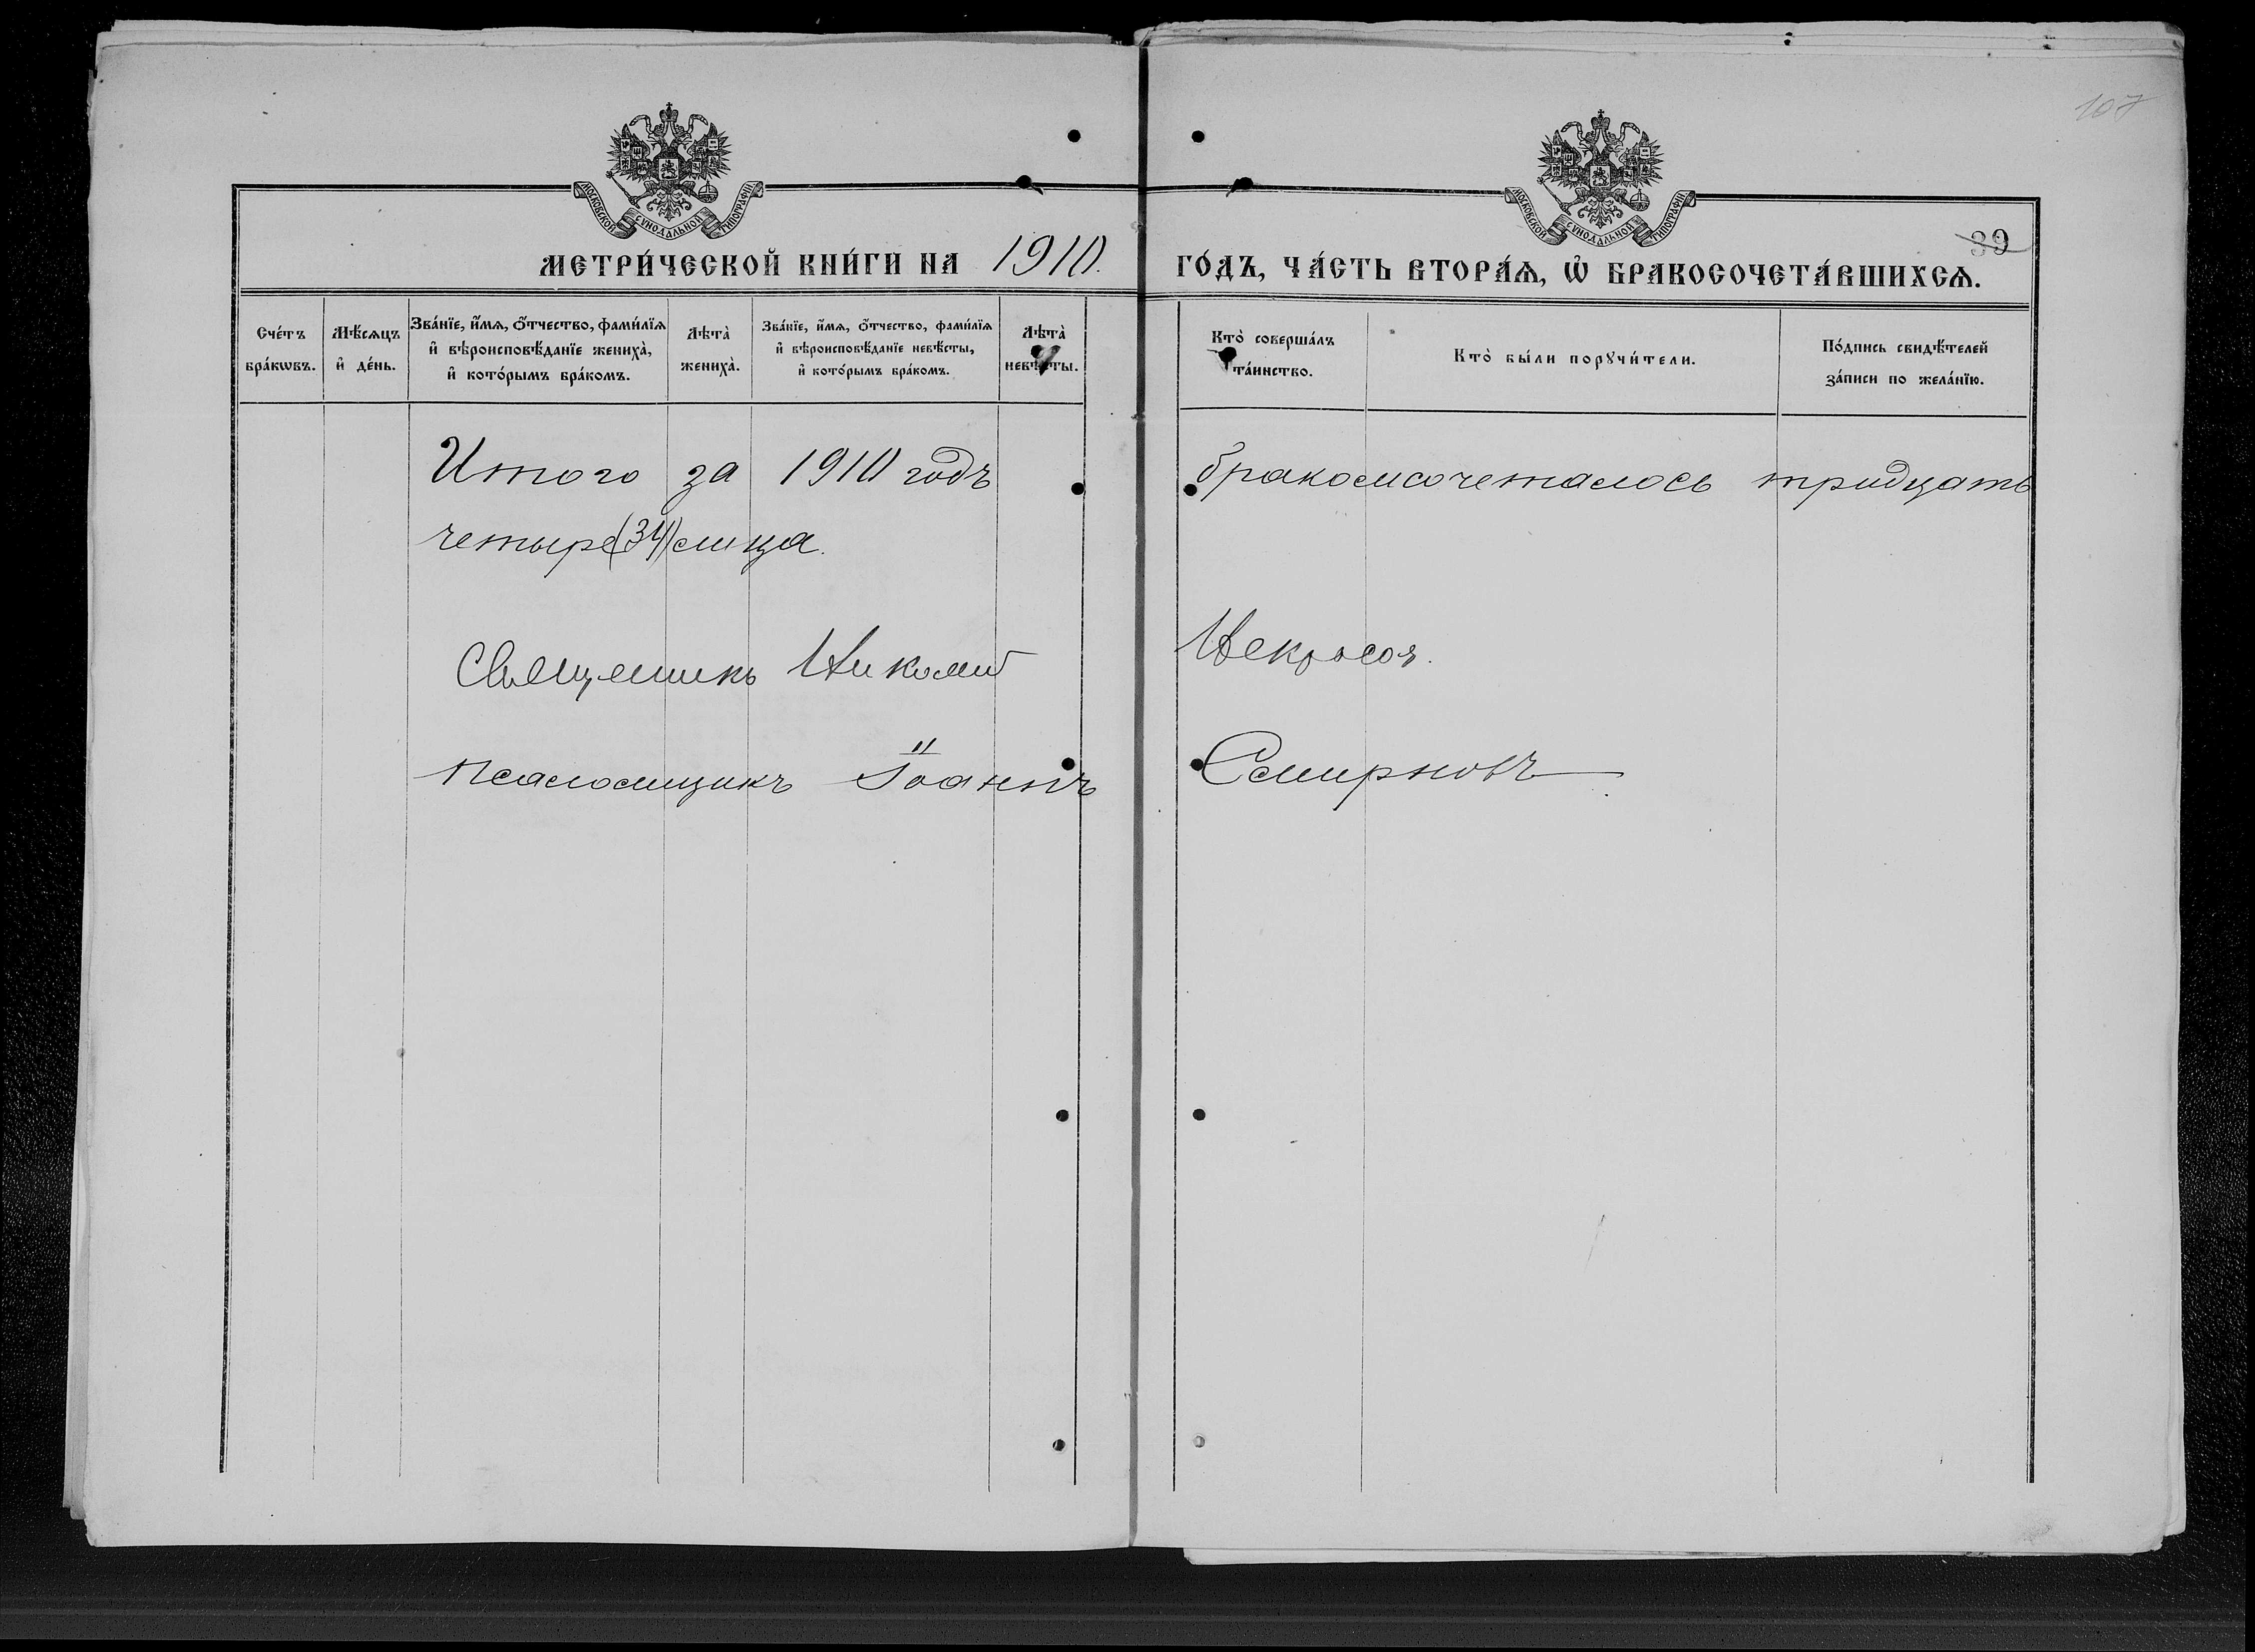 107
МОСКОВСКОЙ СѴНОДАЛЬНОЙ ТИПОГРАФІИ
МОСКОВСКОЙ СѴНОДАЛЬНОЙ ТИПОГРАФІИ
39
МЕТРИ́ЧЕСКОЙ КНИ́ГИ НА 1910. ГО́ДЪ, ЧА́СТЬ ВТОРА́Ѧ, Ѽ БРАКОСОЧЕТА́ВШИХСѦ.
Сче́тъ
бра́кѡвъ.
Мѣ́сѧцъ
и҆ де́нь.
Зва́нїе, и҆́мѧ, ѻ҆́тчество, фами́лїѧ
и҆ вѣроисповѣ́данїе жениха̀,
и҆ кото́рымъ бра́комъ.
Лѣта̀
жениха̀.
Зва́нїе, и҆́мѧ, ѻ҆́тчество, фами́лїѧ
и҆ вѣроисповѣ́данїе невѣ́сты,
и҆ кото́рымъ бра́комъ.
Лѣта̀
невѣ́сты.
Кто̀ соверша́лъ
та́инство.
Кто̀ бы́ли порꙋчи́тели.
По́дпись свидѣ́телей
за́писи по жела́нїю.
Итого за 1910 годъ бракомсочеталось тридцать
четыре (34) лица.
Священникъ Николай Некрасов.
Псаломщикъ Іоаннъ Смирновъ